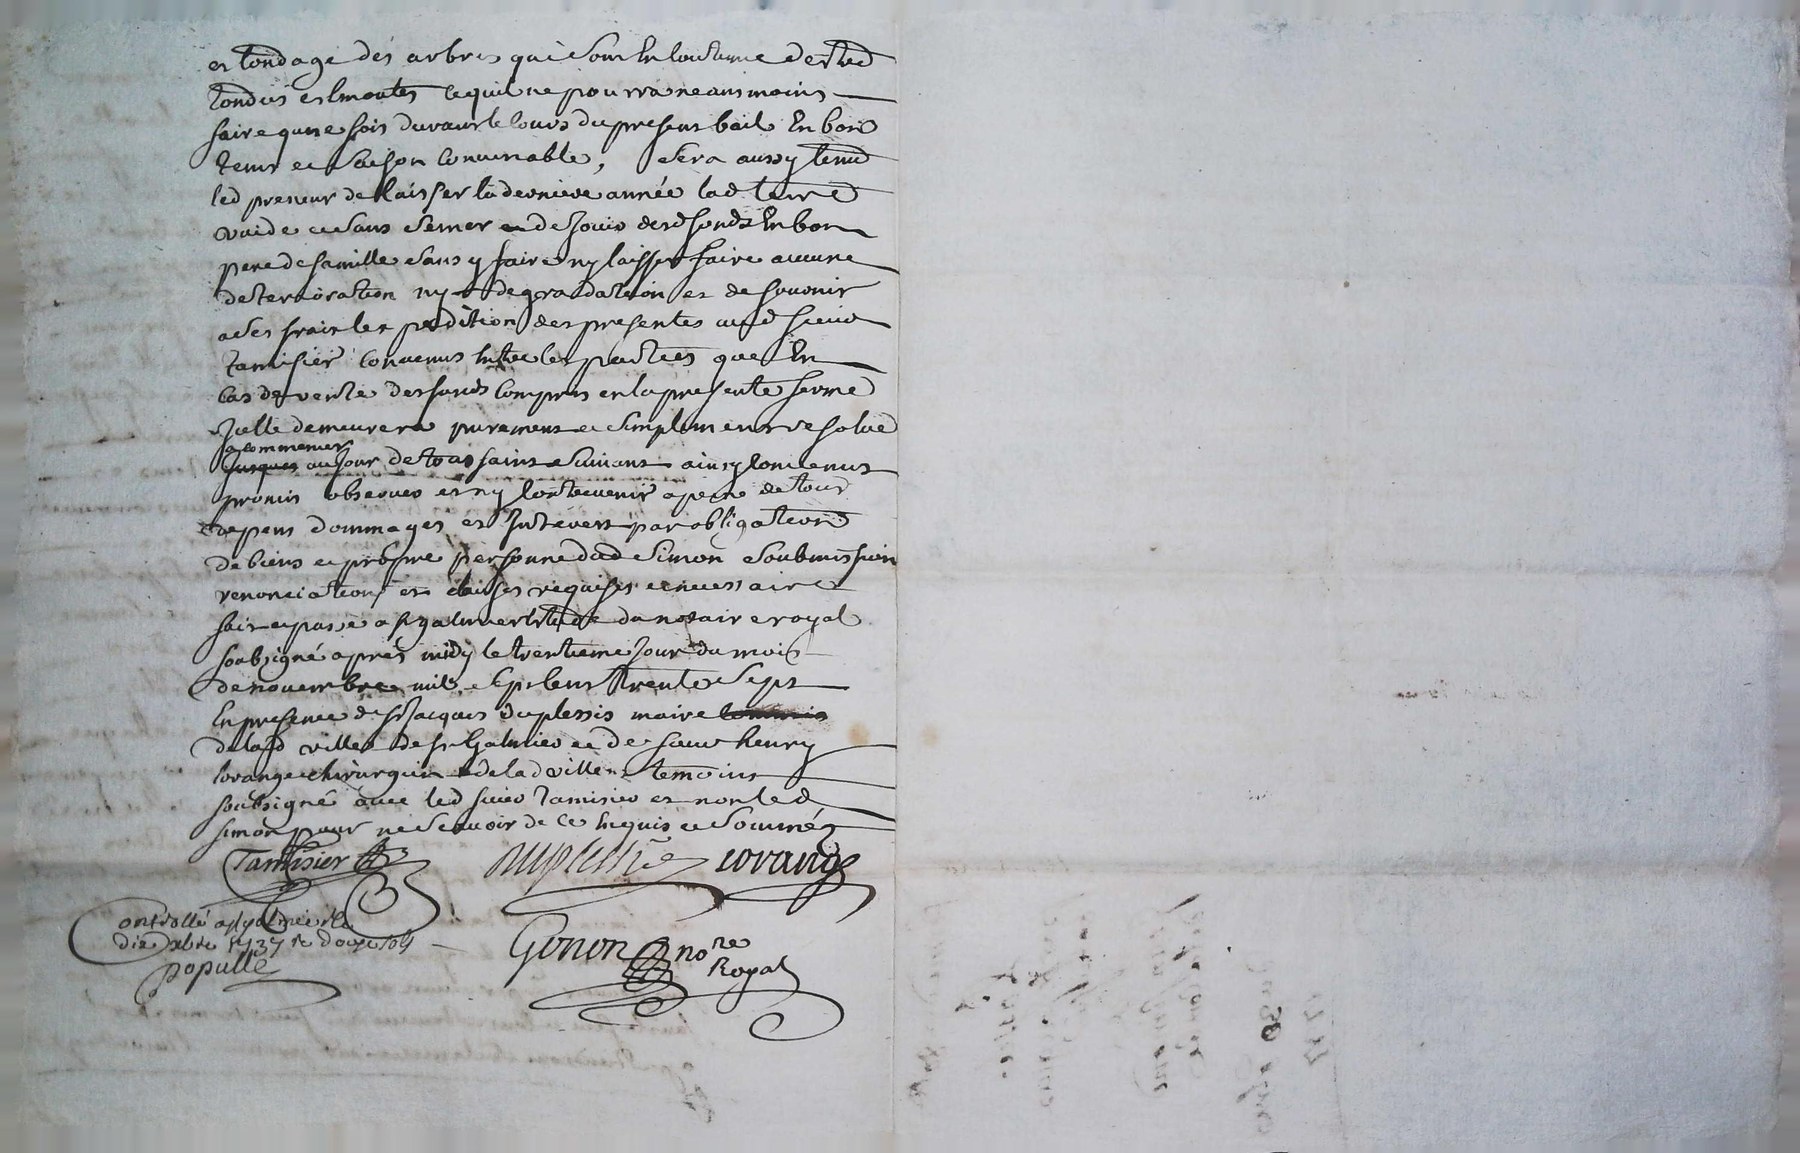 et tondage des arbres qui sont en coutume destre
tondus et emontes ce quil ne pourra neanmoins
faire qune fois durant le cours du present bail en bon
temp et saison convenable, sera aussy tenu
led preneur de laisser la derniere année lad terre
vuide et sans semer et de jouir desd fonds en bon
pere de famille sans y faire ny laisser faire aucune
deterioration ny degradation et de fournir
a ses frais lexpedition des presentes aud sieur
tamisier convenus entre les parties que en
cas de vente des fonds compris en la presente ferme
icelle demeurera purement et simplement resolue
a commencer
jusques au jour de tous saints suivant ainsy convenus
promis observer et ny contrevenir a peine de tous
depens dommages et interests par obligation
de biens et propre personne dud simon soubmission
renonciations et clauses requises et necessaire
fait et passé a st galmier etude du notaire royal
soubsigné apres midy le trentieme jour du mois
de novembre mil sept cent trente sept
en presence de sr jacques duplessis maire
de lad ville de st galmier et de sieur henry
lorange chirurgien de lad ville temoins
soubsigné avec led sieur tamisier et non led
simon pour ne scavoir de ce enquis et sommé
Tamisier
lorange
Controllé a st galmier le
dix xbre 1737 re douze sols
populle
Gonon nore
Royal